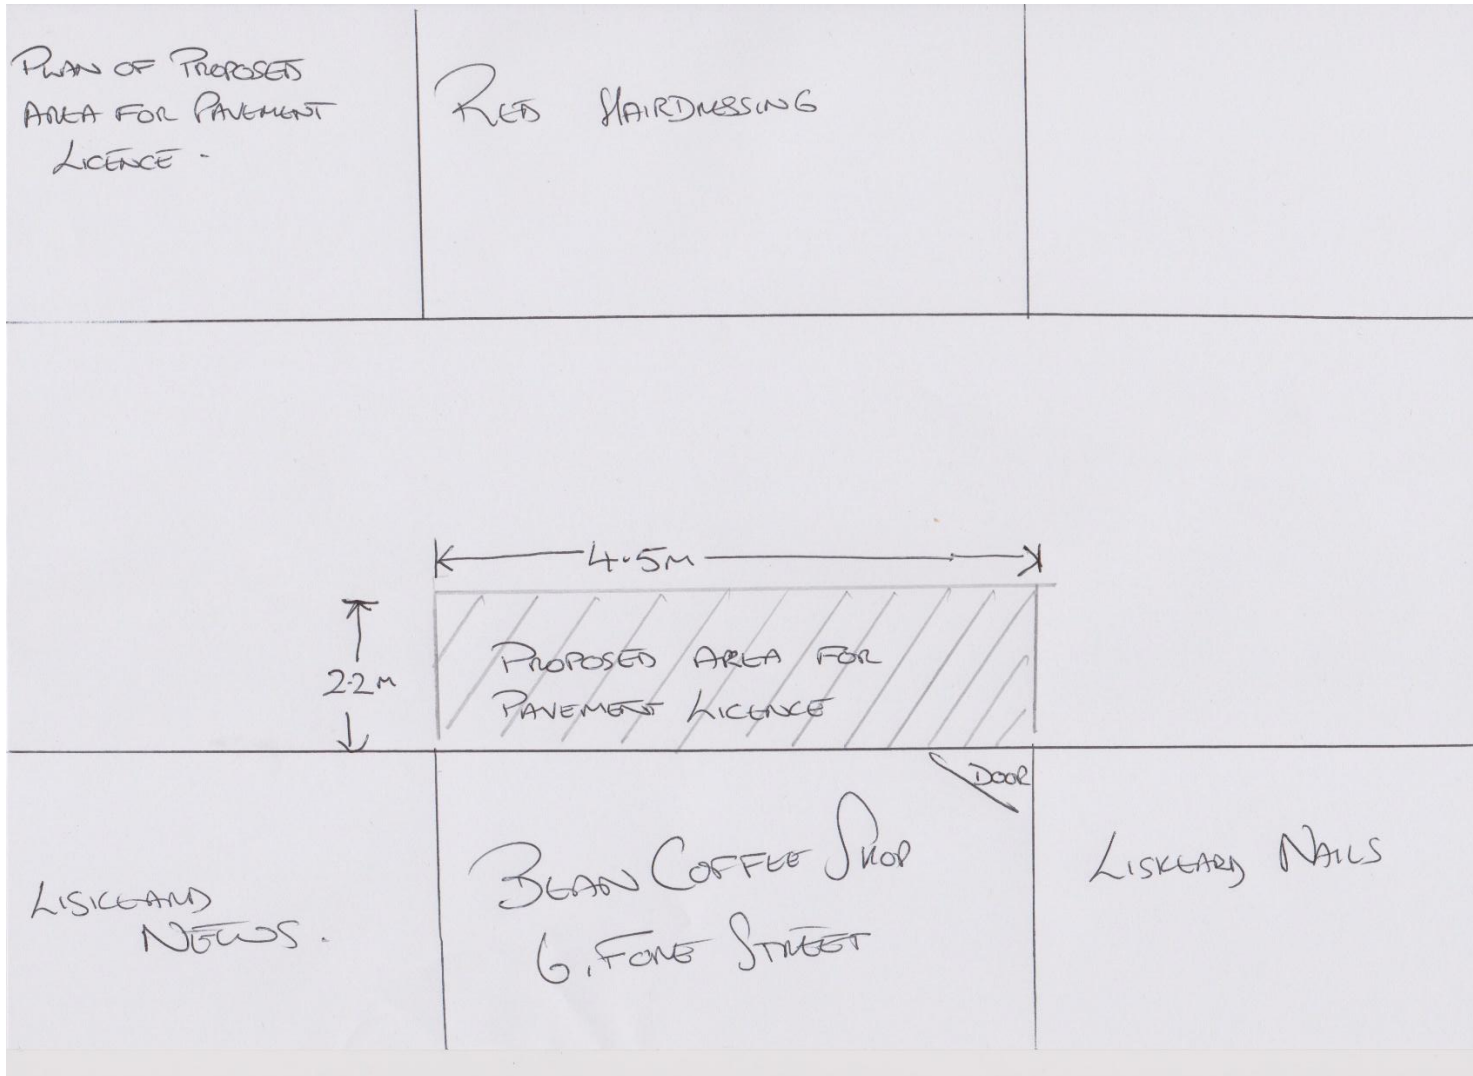 PLAN OF PROPOSED
AREA FOR PAVEMENT
LICENCE -
RED HAIRDRESSING
4.5m
2.2m
PROPOSED AREA FOR
PAVEMENT LICENCE
DOOR
BEAN COFFEE SHOP
6, FORE STREET
LISKEARD
NEWS.
LISKEARD NAILS